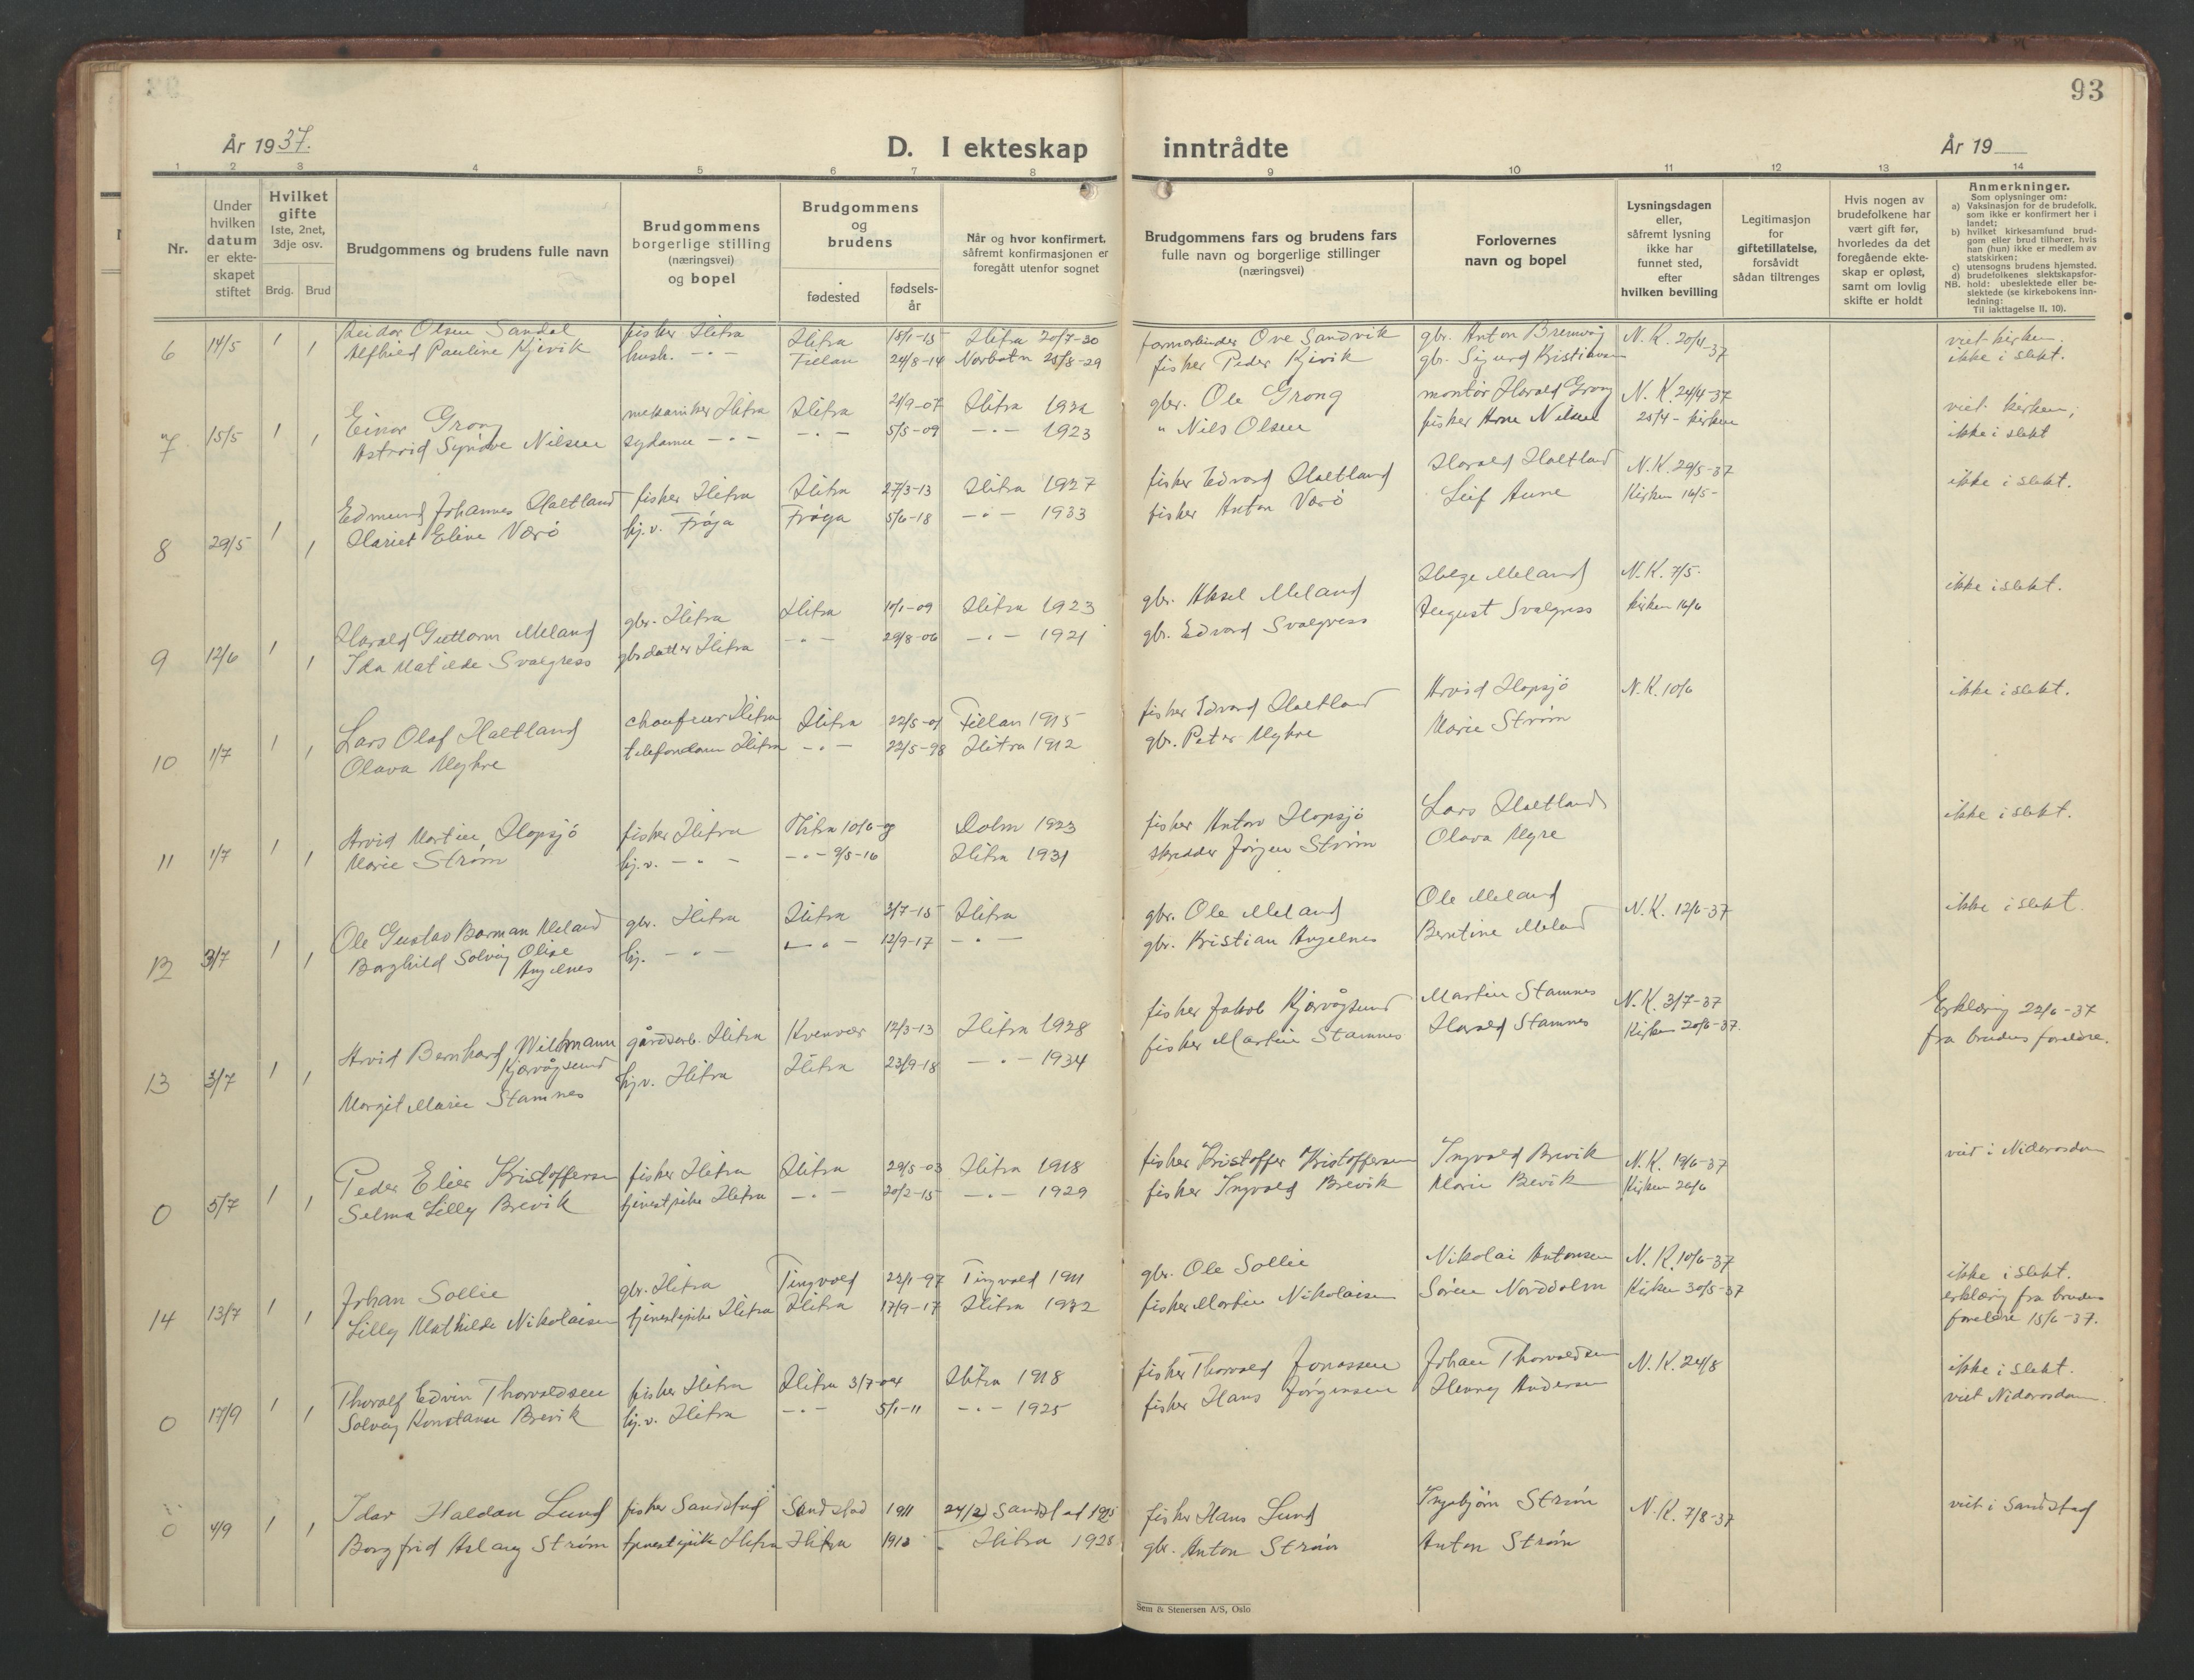 93
År 1937.
D. I ekteskap inntrådte
År 19
1 2 3 4 5 6 7 8 9 10 11 12 13 14
Nr.
Under hvilken datum er ekte- skapet stiftet
Hvilket gifte
1ste, 2net, 3dje osv.
Brdg. Brud
Brudgommens og brudens fulle navn
Brudgommens borgerlige stilling (næringsvei) og bopel
Brudgommens og brudens
fødested
fødsels- år
Når og hvor konfirmert, såfremt konfirmasjonen er foregått utenfor sognet
Brudgommens fars og brudens fars fulle navn og borgerlige stillinger (næringsvei)
Forlovernes navn og bopel
Lysningsdagen eller, såfremt lysning ikke har funnet sted, efter hvilken bevilling
Legitimasjon for giftetillatelse, forsåvidt sådan tiltrenges
Hvis nogen av brudefolkene har vært gift før, hvorledes da det foregående ekte- skap er opløst, samt om lovlig skifte er holdt
Anmerkninger.
Som oplysninger om:
a) Vaksinasjon for de brudefolk, som ikke er konfirmert her i landet;
b) hvilket kirkesamfund brud- gom eller brud tilhører, hvis han (hun) ikke er medlem av statskirken;
c) utensogns brudens hjemsted.
d) brudefolkenes slektskapsfor- hold: ubeslektede eller be- slektede (se kirkebokens inn- ledning:
NB. Til iakttagelse II, 10).
6 14/5 1 Reidar Olsen Sandal fisker Hitra Hitra 15/1-15 Hitra 20/7-30 Ove Sandvik gbr. Anton Bremvåg N.K. 20/4-37 viet kirken.
1 Alfhild Pauline Kjivik hush. -"- Fillan 24/8-14 Norbotn 25/8-29 fisker Peder Kjivik gbr. Sigurd Kristiansen ikke i slekt.
7 15/5 1 Einar Grong mekaniker Hitra Hitra 21/9-07 Hitra 1922 gbr. Ole Grong montør Harald Grong N.K. 24/4-37 viet kirken;
1 Astrid Synøve Nilsen sydame -"- -"- 5/5-09 -"- 1923 " Nils Olsen fisker Arne Nilsen 25/4- kirken ikke i slekt
8 29/5 1 Edmund Johannes Haltland fisker Hitra Hitra 27/3-13 Hitra 1927 fisker Edvard Haltland Harald Haltland N.K. 29/5-37 ikke i slekt.
1 Hariet Eline Værø hj.v. Frøya Frøya 5/6-18 -"- 1933 fisker Anton Værø Leif Aune Kirken 16/5-
9 12/6 1 Harald Guttorm Meland gbr. Hitra Hitra 10/1-09 Hitra 1923 gbr. Aksel Meland Helge Meland N.K. 7/5. ikke i slekt.
1 Ida Matilde Svalgress gbrdatter Hitra -"- 29/8-06 -"- 1921 gbr. Edvard Svalgress August Svalgress kirken 16/6
10 1/7 1 Lars Olaf Haltland chaufeur Hitra Hitra 22/5-01 Fillan 1915 fisker Edvard Haltland Arvid Hopsjø N.K. 10/6 ikke i slekt.
1 Olava Myhre telefondame Hitra -"- 22/5-98 Hitra 1912 gbr. Peter Myhre Marie Strøm
11 1/7 1 Arvid Martin Hopsjø fisker Hitra Hitra 10/6-09 Dolm 1923 fisker Anton Hopsjø Lars Haltland ikke i slekt.
1 Marie Strøm hj.v. -"- -"- 9/5-16 Hitra 1931 skredder Jørgen Strøm Olava Myre
12 3/7 1 Ole Gustav Barman Meland gbr. Hitra Hitra 3/7-15 Hitra gbr. Ole Meland Ole Meland N.K. 12/6-37 ikke i slekt.
1 Borghild Solvig Olise Angelnes hj. -"- -"- 12/9-17 -"- gbr. Kristian Angelnes Berntine Meland
13 3/7 1 Arvid Bernhard Willmann Kjørvågsund gårdsarb. Hitra Kvenvær 12/3-13 Hitra 1928 fisker Jakob Kjørvågsund Martin Stamnes N.K. 3/7-37 Erklæring 22/6-37
1 Margit Marie Stamnes hjv. Hitra Hitra 23/9-18 -"- 1934 fisker Martin Stamnes Harald Stamnes Kirken 20/6-37. fra brudens foreldre.
0 5/7 1 Peder Elier Kristoffersen fisker Hitra Hitra 29/5-03 Hitra 1918 fisker Kristoffer Kristoffersen Ingvald Brevik N.K. 19/6-37 viet i Nidarosdom
1 Selma Lilly Brevik tjenestpike Hitra -"- 20/2-15 -"- 1929 fisker Ingvald Brevik Marie Bevik Kirken 20/6
14 13/7 1 Johan Sollie gbr. Hitra Tingvold 22/1-97 Tingvold 1911 gbr. Ole Sollie Nikolai Antonsen N.K. 10/6-37 ikke i slekt.
1 Lilly Mathilde Nikolaisen tjenestepike Hitra Hitra 17/9-17 Hitra 1932 fisker Martin Nikolaisen Søren Norddolm Kirken 30/5-37 erklæring fra brudens foreldre 15/6-37.
0 17/9 1 Thoralf Edvin Thorvaldsen fisker Hitra Hitra 3/7-04 Hitra 1918 fisker Thorvald Jonassen Johan Thorvaldsen N.K. 24/8 ikke i slekt.
1 Solveig Konstanse Brevik hj.v. Hitra -"- 5/1-11 -"- 1925 fisker Hans Jørgensen Henny Andersen viet Nidarosdom.
0 4/9 1 Idar Haldan Lund fisker Sandstad Sandstad 1911 24/2) Sandstad 1925 fisker Hans Lund Ingebjørn Strøm N.K. 7/8-37 viet i Sandstad
1 Borgfrid Aslaug Strøm tjenestepike Hitra Hitra 1913 Hitra 1928 gbr. Anton Strøm Anton Strøm
Sem & Stenersen A/S, Oslo